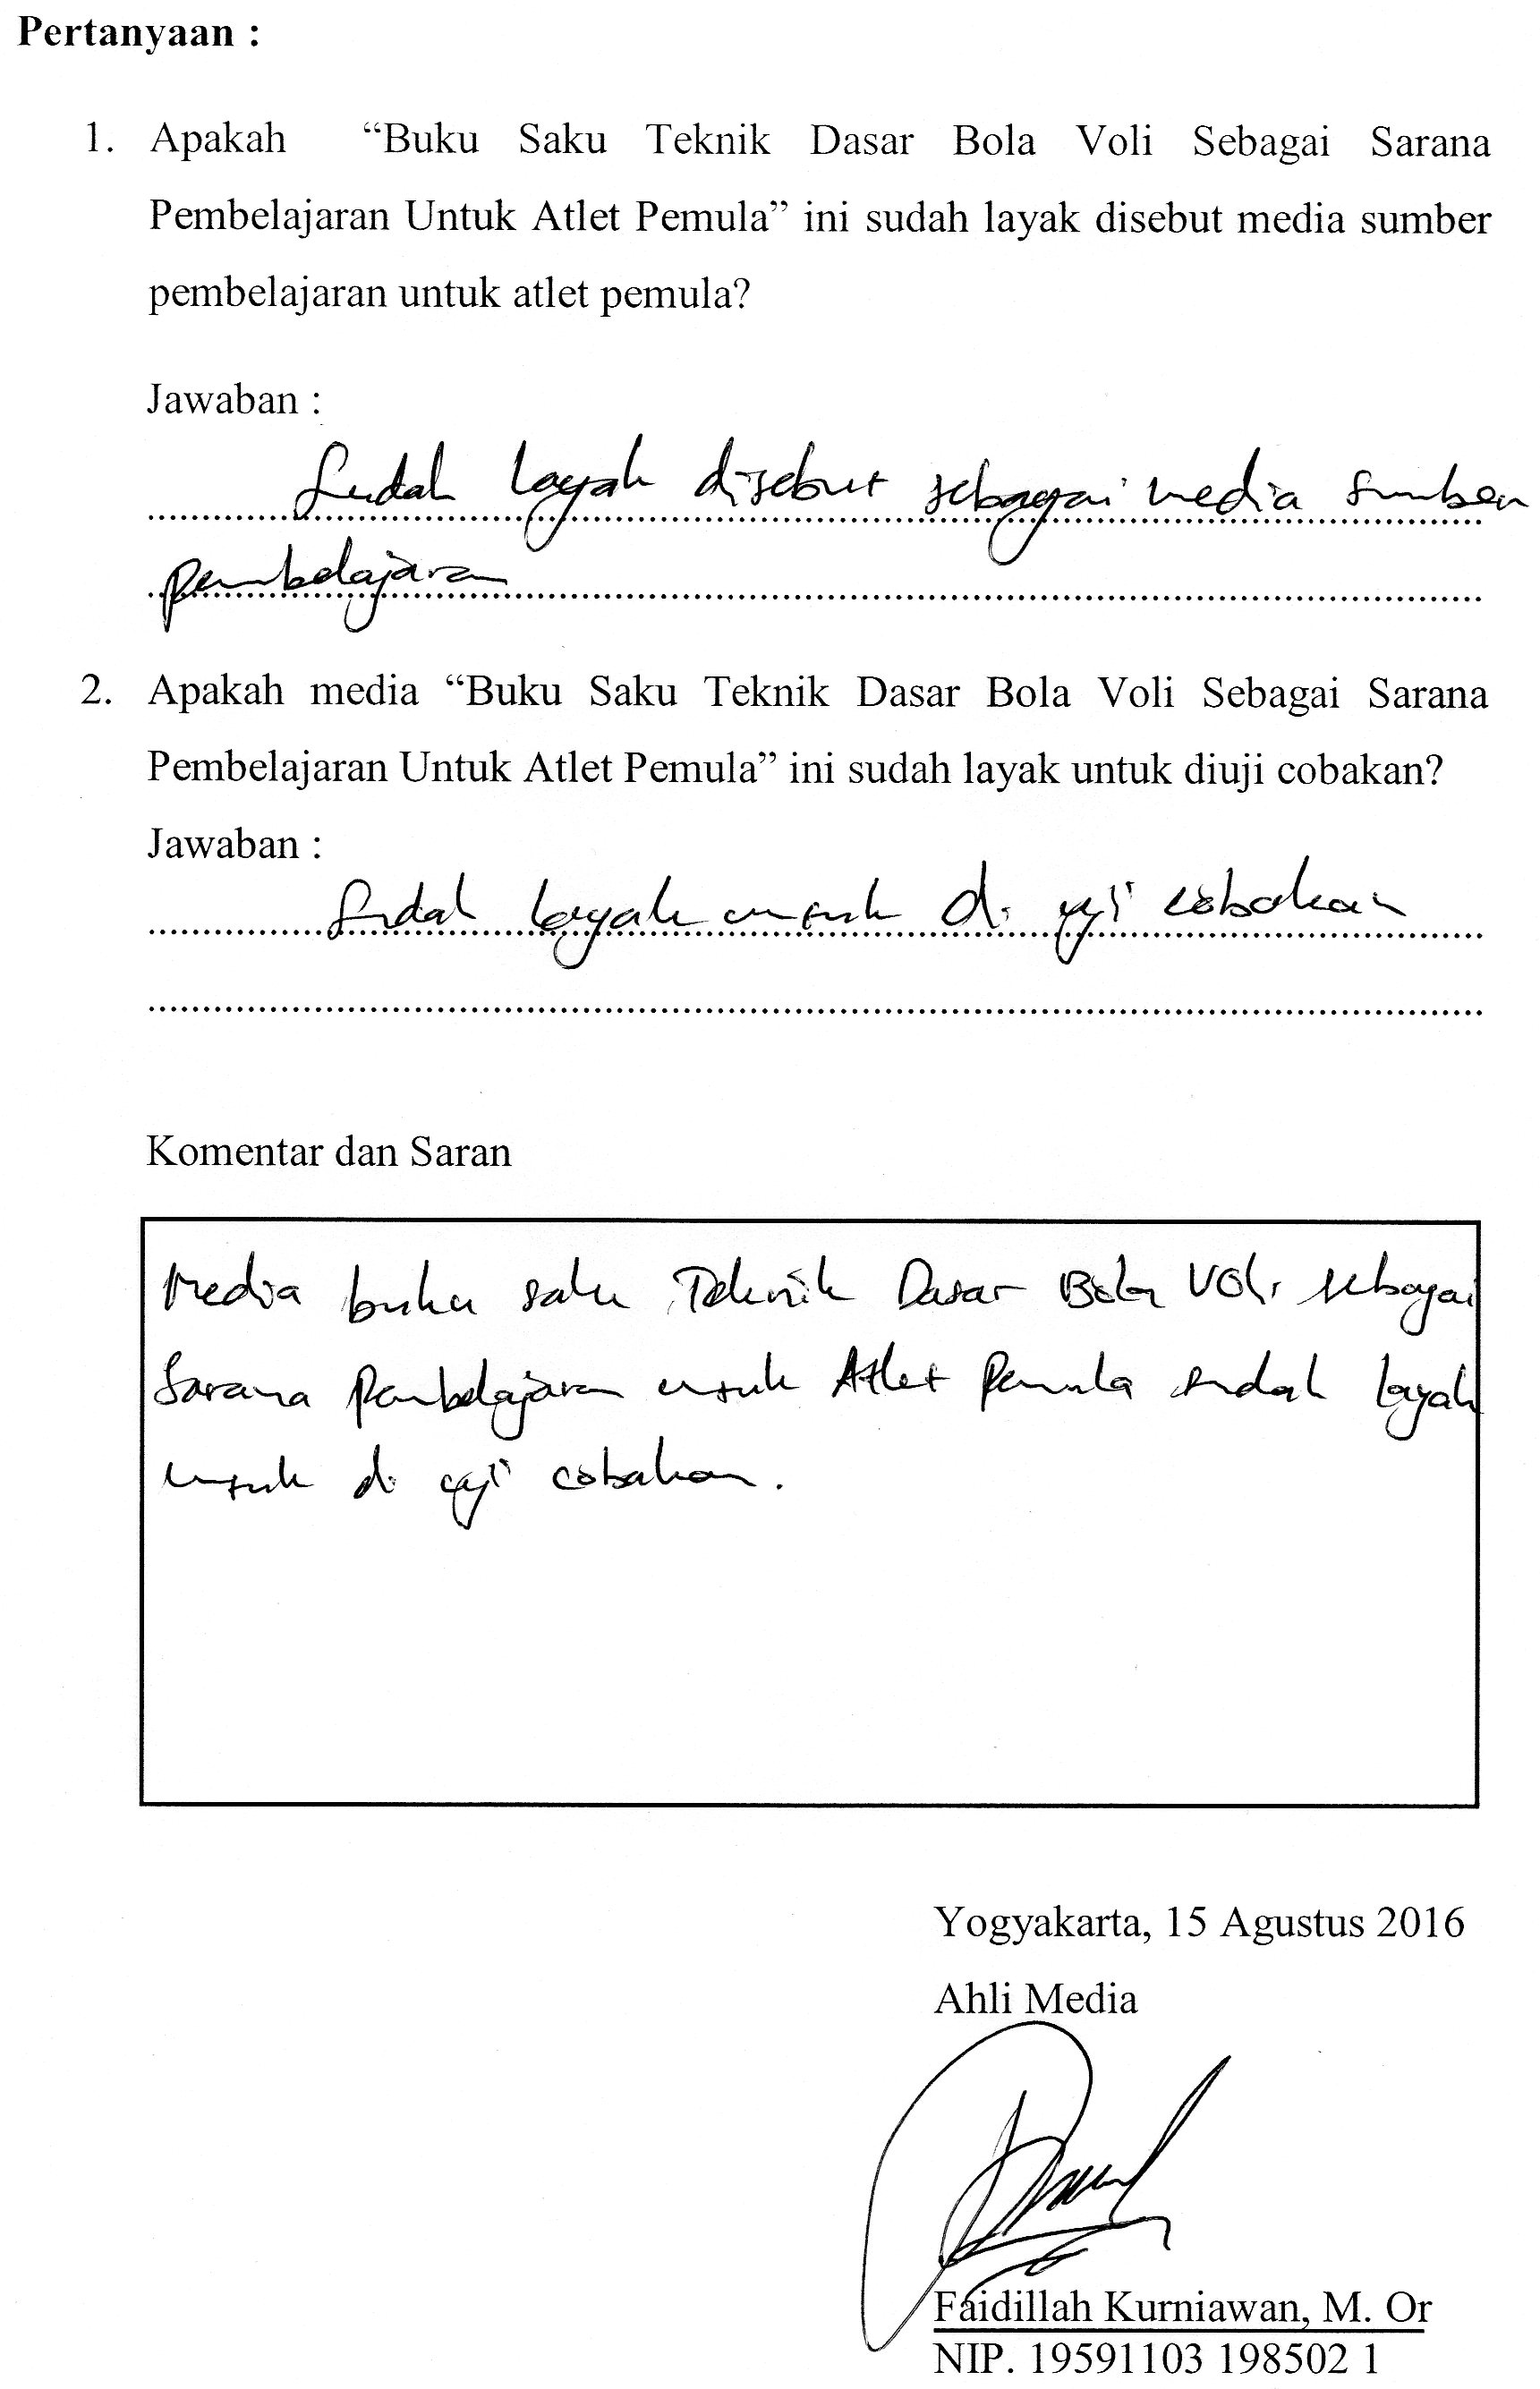 Pertanyaan :
1. Apakah “Buku Saku Teknik Dasar Bola Voli Sebagai Sarana
Pembelajaran Untuk Atlet Pemula” ini sudah layak disebut media sumber
pembelajaran untuk atlet pemula?
Jawaban :
Sudah layak disebut sebagai media sumber
pembelajaran
2. Apakah media “Buku Saku Teknik Dasar Bola Voli Sebagai Sarana
Pembelajaran Untuk Atlet Pemula” ini sudah layak untuk diuji cobakan?
Jawaban :
Sudah layak untuk di uji cobakan
Komentar dan Saran
Media buku saku Teknik Dasar Bola Voli sebagai
Sarana Pembelajaran untuk Atlet Pemula sudah layak
untuk di uji cobakan.
Yogyakarta, 15 Agustus 2016
Ahli Media
Faidillah Kurniawan, M. Or
NIP. 19591103 198502 1